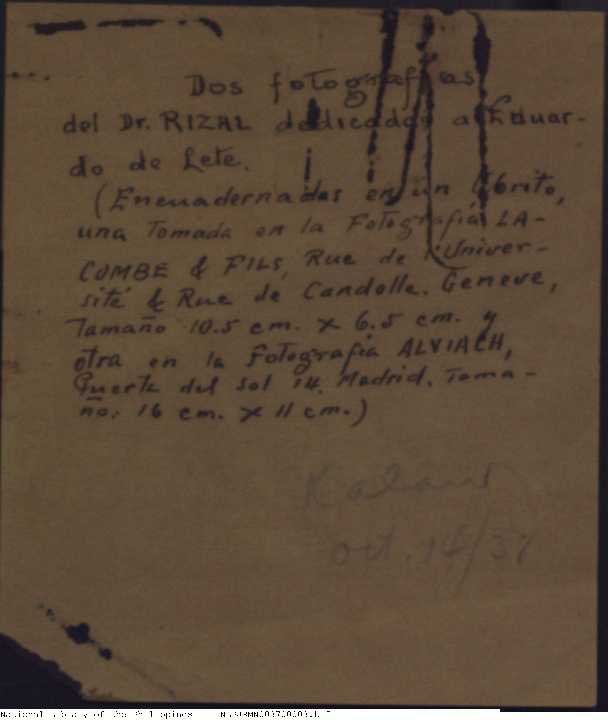 Dos fotografias
del Dr. RIZAL dedicadas a Eduar-
do de Lete.
(Encuadernadas en un librito,
una Tomada en la Fotografía LA-
COMBE & FILS, Rue de l'Univer-
sité & Rue de Candolle. Geneve,
Tamaño 10.5 cm. x 6.5 cm. y
otra en la Fotografía ALVIACH,
Puerta del Sol 14. Madrid. Tama-
ño: 16 cm. x 11 cm.)
Kalaw
Oct. 14/37
National Library of the Philippines